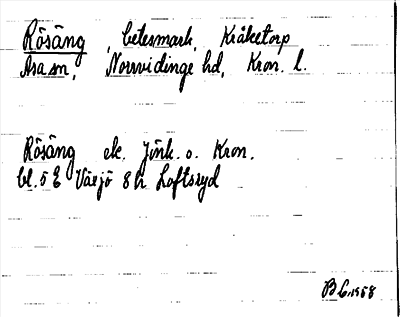 Rösäng, betesmark, Kråketorp
Asa sn, Norrvidinge hd, Kron. l.
Rösäng ek. Jönk. o. Kron.
bl. 5 E Växjö 8 h Loftsryd
B L 1958